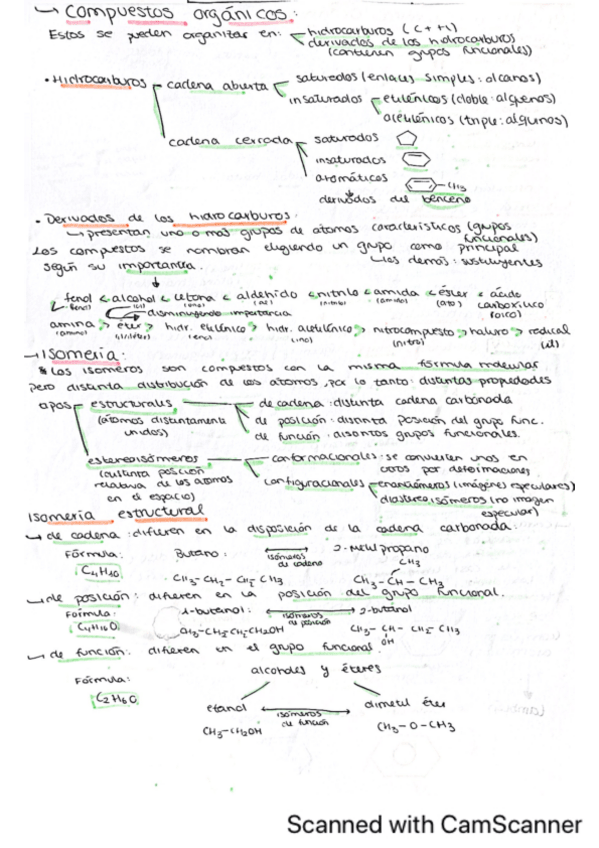 → Compuestos orgánicos:
Estos se pueden organizar en: hidrocarburos (C + H)
derivados de los hidrocarburos
(contienen grupos funcionales)
• Hidrocarburos cadena abierta saturados (enlaces simples: alcanos)
insaturados etilénicos (doble: alquenos)
acetilénicos (triple: alquinos)
cadena cerrada saturados
insaturados
aromáticos CH3
derivados del benceno
• Derivados de los hidrocarburos:
→ presentan uno o más grupos de atomos característicos (grupos
funcionales)
Los compuestos se nombran eligiendo un grupo como principal
según su importancia. los demás: sustituyentes
fenol < alcohol < cetona < aldehído < nitrilo < amida < éster < ácido
carboxílico
(oico)
disminuyendo importancia
amina > éter > hidr. etilénico > hidr. acetilénico > nitrocompuesto > haluro > radical
(amino) (eno) (ino) (nitro) (il)
→ Isomería:
Los isómeros son compuestos con la misma fórmula molecular
pero distinta distribución de los átomos, por lo tanto: distintas propiedades
tipos estructurales de cadena: distinta cadena carbonada
(átomos distintamente de posición: distinta posición del grupo func.
unidos) de función: distintos grupos funcionales.
estereoisómeros conformacionales: se convierten unos en
(distinta posición otros por deformaciones
relativa de los átomos configuracionales enantiómeros (imágenes especulares)
en el espacio) diastereoisómeros (no imagen
especular)
Isomería estructural
→ de cadena: difieren en la disposición de la cadena carbonada:
Fórmula: Butano: 2-metil propano
isómeros de cadena CH3
C4H10 CH3-CH2-CH2-CH3 CH3-CH-CH3
→ de posición: difieren en la posición del grupo funcional.
Fórmula: 1-butanol: 2-butanol
isómeros de posición
C4H10O CH3-CH2CH2CH2OH CH3-CH-CH2-CH3
OH
→ de función: difieren en el grupo funcional
alcoholes y éteres
Fórmula:
C2H6O
etanol dimetil éter
isómeros de función
CH3-CH2OH CH3-O-CH3
Scanned with CamScanner